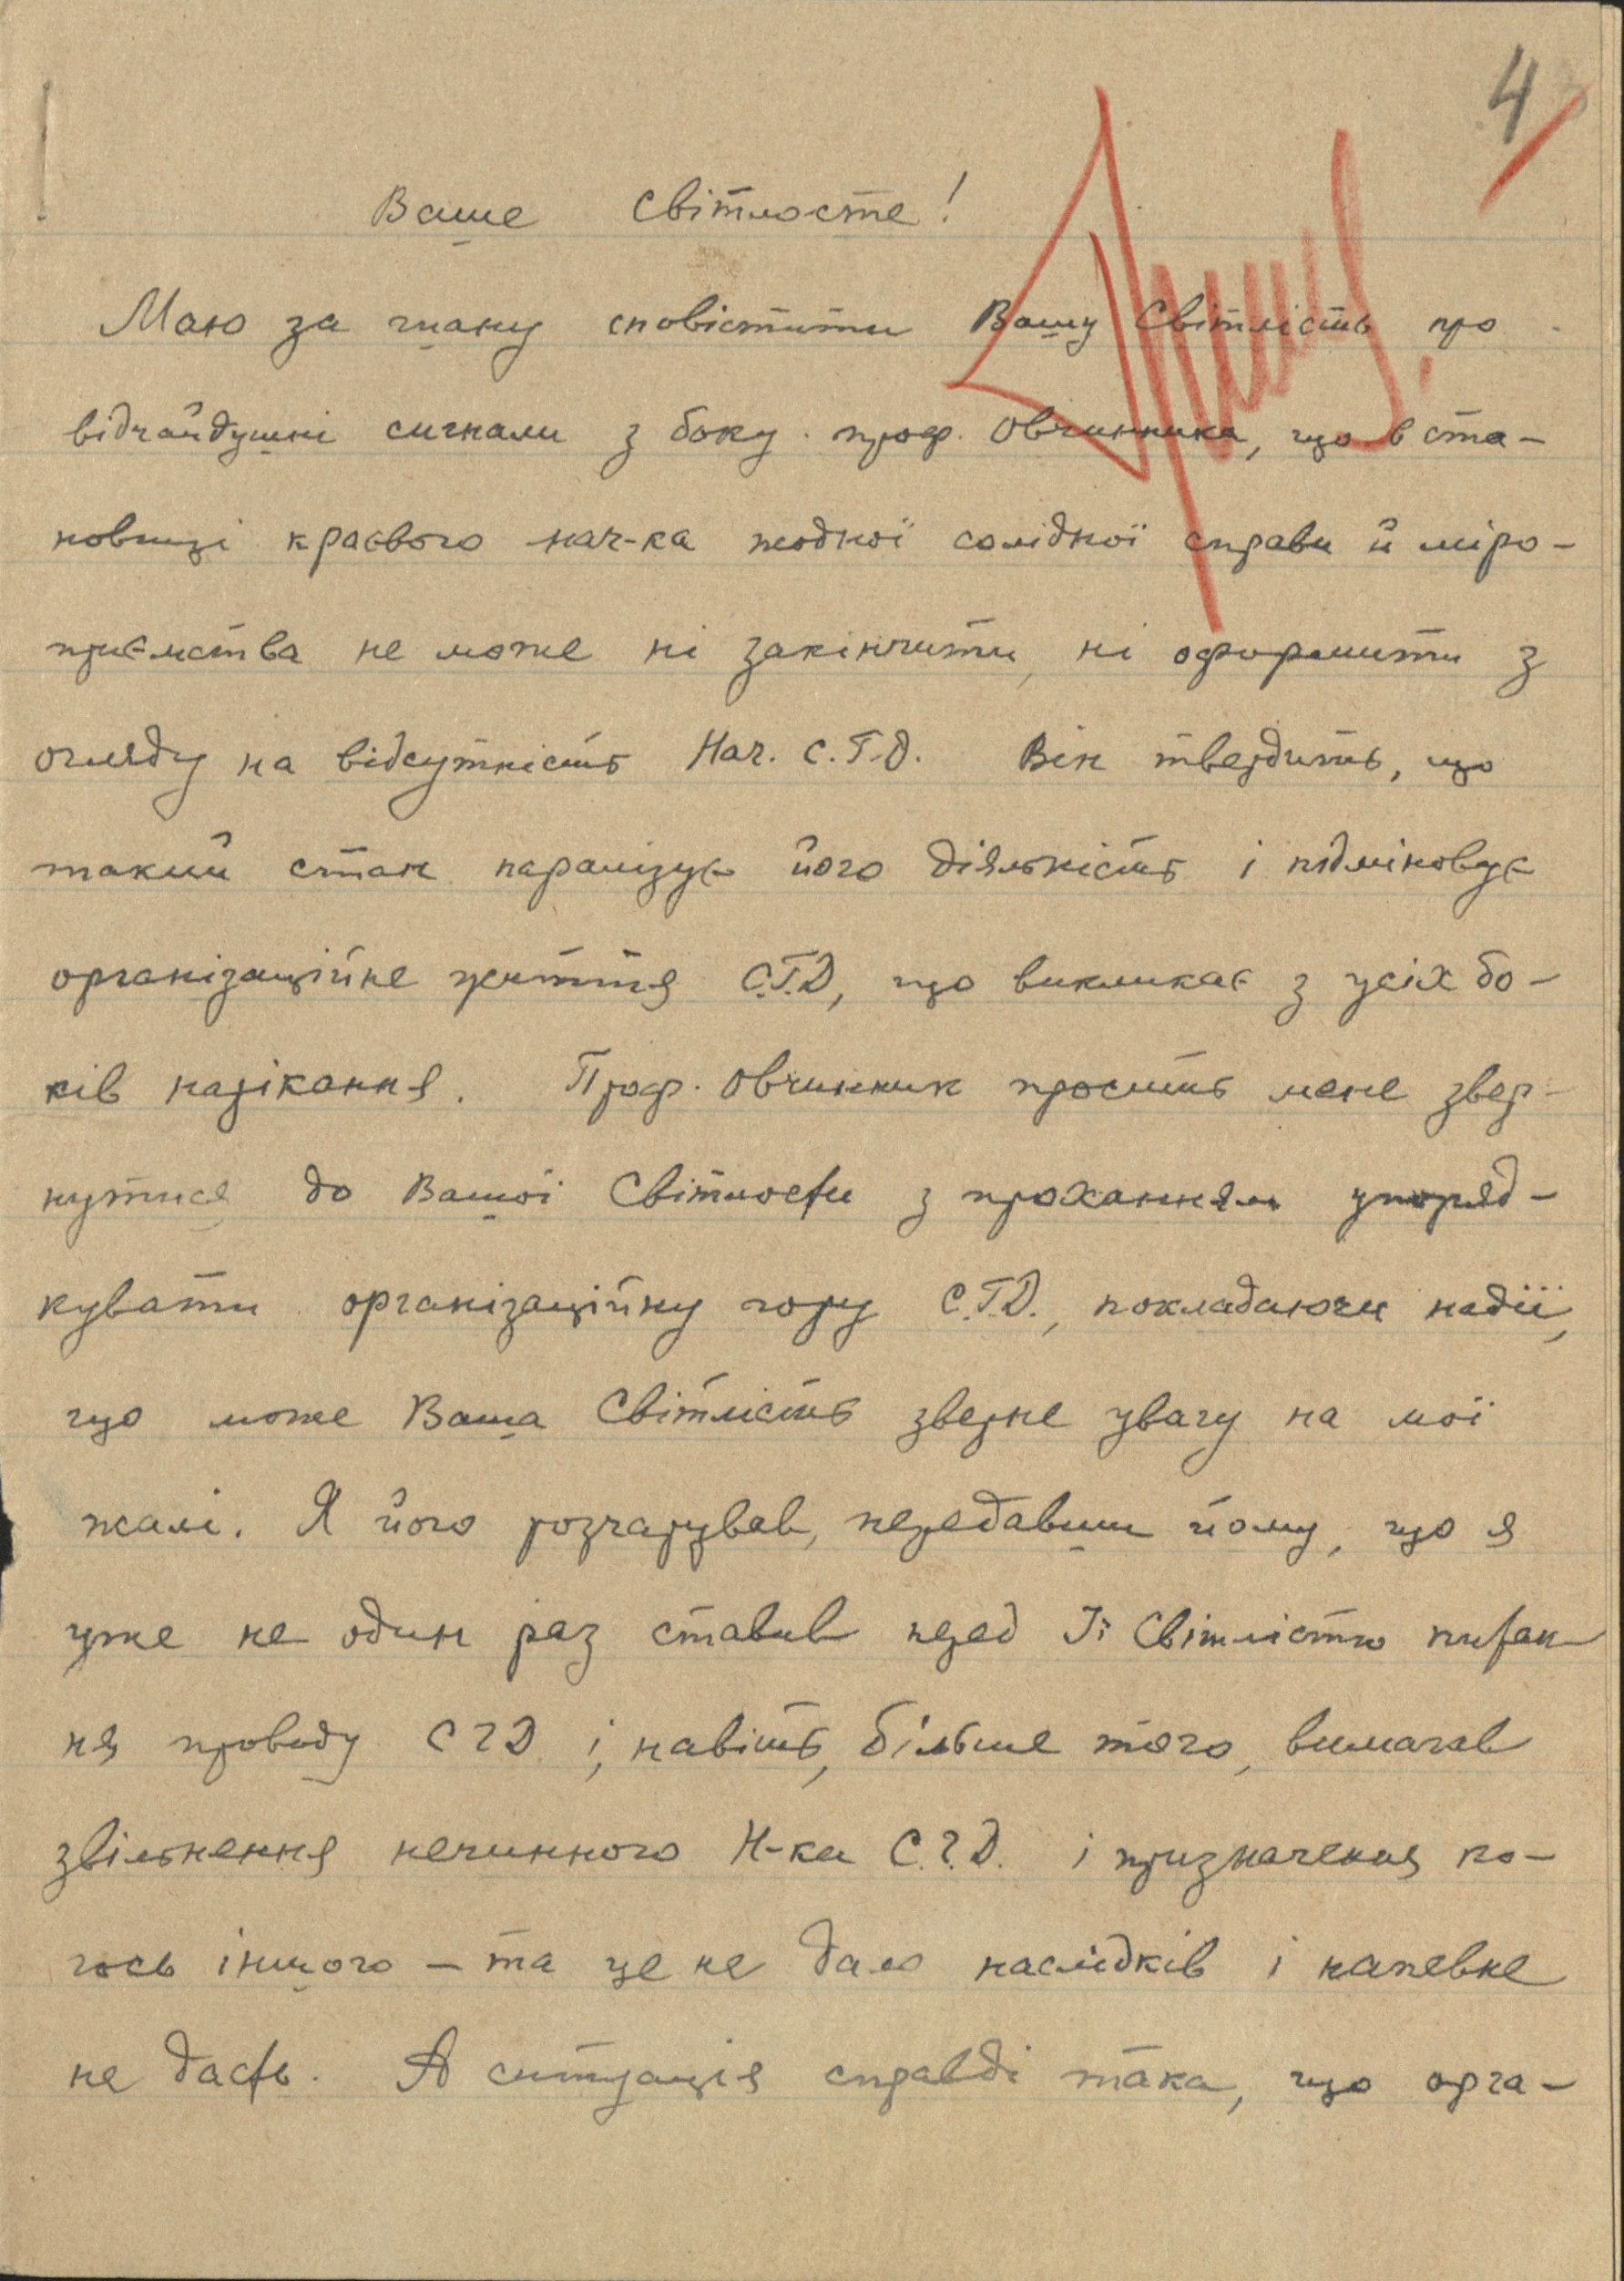 4
Ваше Світлосте!
Маю за шану сповістити Вашу Світлість про
відчайдушні сигнали з боку проф. Овчинника, що в ста-
новищі краєвого нач-ка жодної солідної справи й міро-
приємства не може ні закінчити, ні оформити з
огляду на відсутність Нач. С.Г.Д. Він твердить, що
такий стан паралізує його діяльність і підміновує
організаційне життя С.Г.Д, що викликає з усіх бо-
ків нарікання. Проф. Овчинник просить мене звер-
нутися до Вашої Світлости з проханням упоряд-
кувати організаційну гору С.Г.Д., покладаючи надії,
що може Ваша Світлість зверне увагу на мої
жалі. Я його розчарував, передавши йому, що я
уже не один раз ставив перед Її Світлістю питан-
ня проводу СГД і, навіть, більше того, вимагав
звільнення нечинного Н-ка С.Г.Д. і призначення ко-
гось іншого – та це не дало наслідків і напевне
не дасть. А ситуація справді така, що орга-